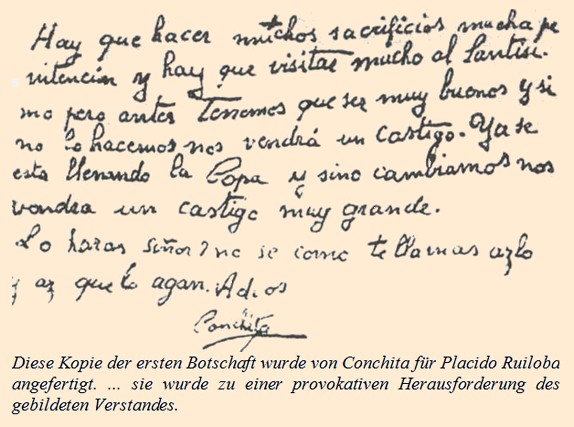 Hay que hacer muchos sacrificios mucha pe
nitencia y hay que visitar mucho al Santisi-
mo pero antes tenemos que ser muy buenos y si
no lo hacemos nos vendrá un castigo. Ya se
esta llenando la Copa y sino cambiamos nos
vendra un castigo muy grande.
Lo haras señor? no se como te llamas azlo
y az que lo agan. Adios
Conchita
Diese Kopie der ersten Botschaft wurde von Conchita für Placido Ruiloba
angefertigt. ... sie wurde zu einer provokativen Herausforderung des
gebildeten Verstandes.